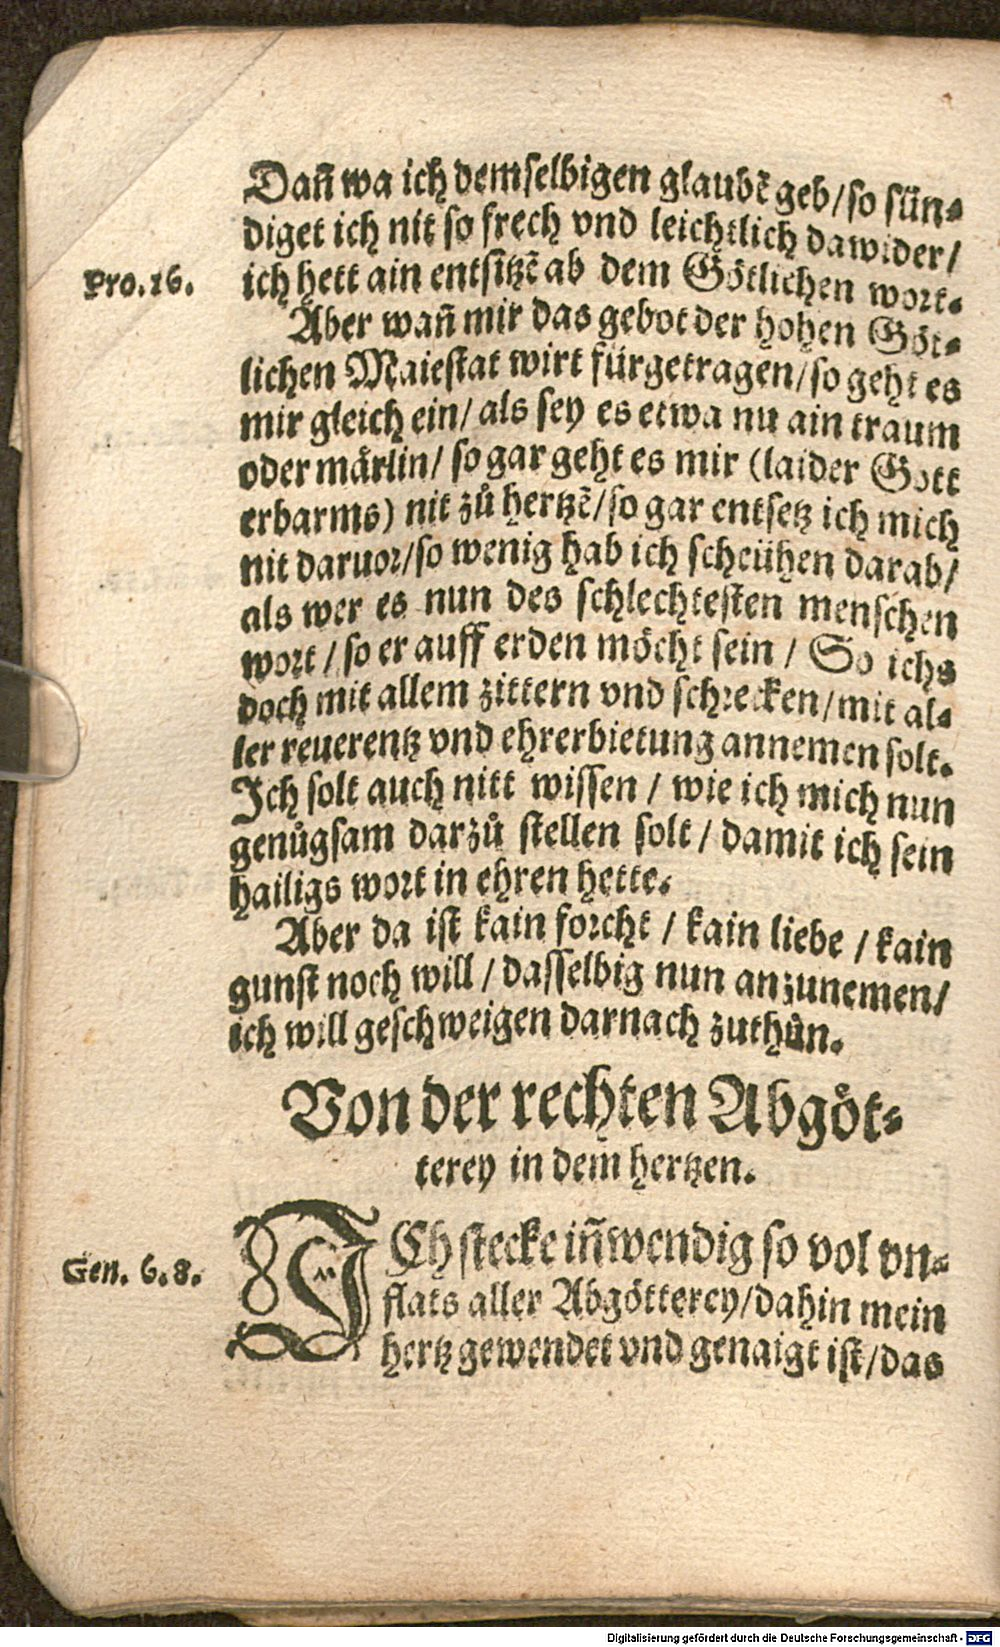 Dañ wa ich demselbigen glaubẽ geb/ so sün⸗
diget ich nit so frech vnd leichtlich dawider/
Pro. 16.
ich hett ain entsitzẽ ab dem Götlichen wort.
Aber wañ mir das gebot der hohen Göt⸗
lichen Maiestat wirt fürgetragen/ so geht es
mir gleich ein/ als sey es etwa nu ain traum
oder mårlin/ so gar geht es mir (laider Gott
erbarms) nit zů hertzẽ/ so gar entsetz ich mich
nit daruor/ so wenig hab ich scheühen darab/
als wer es nun des schlechtesten menschen
wort/ so er auff erden möcht sein/ So ichs
doch mit allem zittern vnd schrecken/ mit al⸗
ler reuerentz vnd ehrerbietung annemen solt.
Ich solt auch nitt wissen/ wie ich mich nun
genůgsam darzů stellen solt/ damit ich sein
hailigs wort in ehren hette.
Aber da ist kain forcht/ kain liebe/ kain
gunst noch will/ dasselbig nun anzunemen/
ich will geschweigen darnach zuthůn.
Von der rechten Abgöt⸗
terey in dem hertzen.
Gen. 6. 8.
ICh stecke iñwendig so vol vn⸗
flats aller Abgötterey/ dahin mein
hertz gewendet vnd genaigt ist/ das
Digitalisierung gefördert durch die Deutsche Forschungsgemeinschaft - DFG